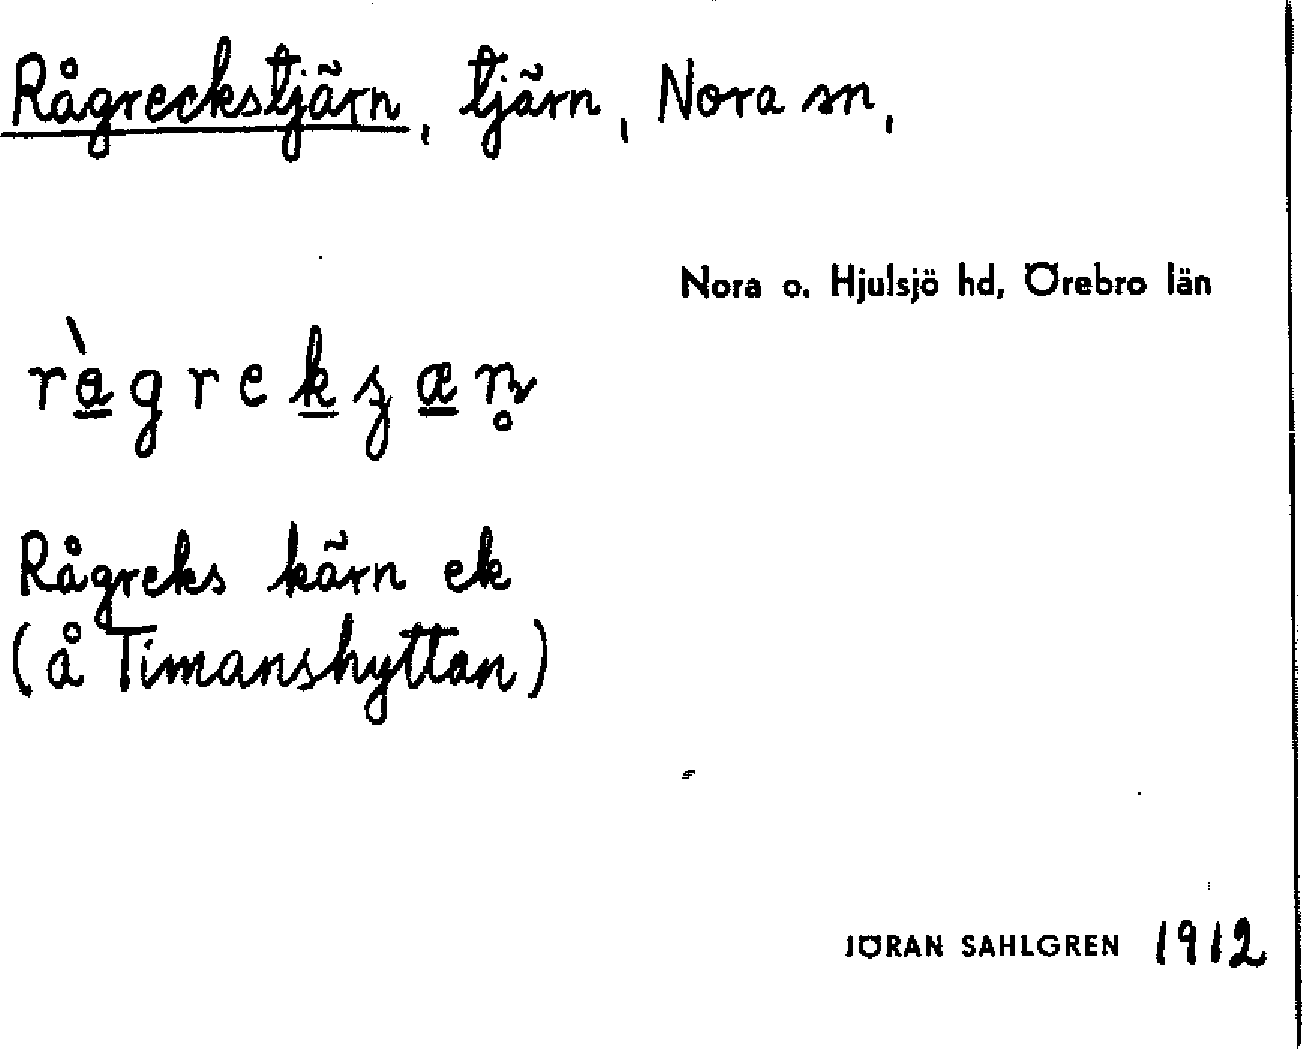 Rågreckstjärn, tjärn, Nora sn,
Nora o. Hjulsjö hd, Örebro län
ràgrekzæn̥
Rågreks kärn ek
(å Timanshyttan)
JÖRAN SAHLGREN 1912